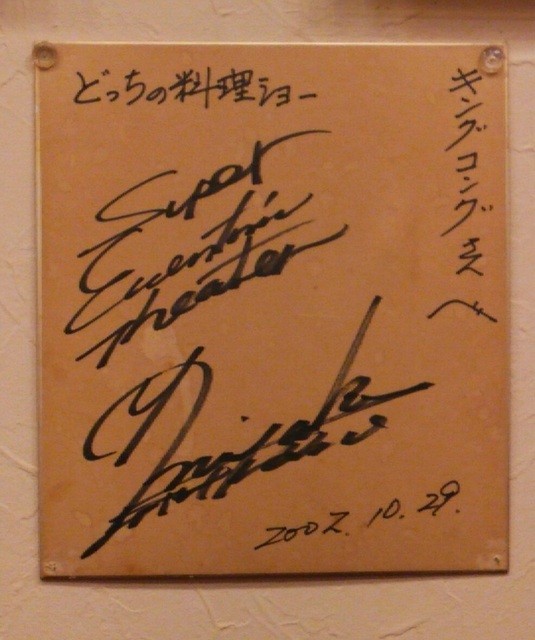 どっちの料理ショー
キングコングさんへ
Super
Eccentric
Theater
2002.10.29.